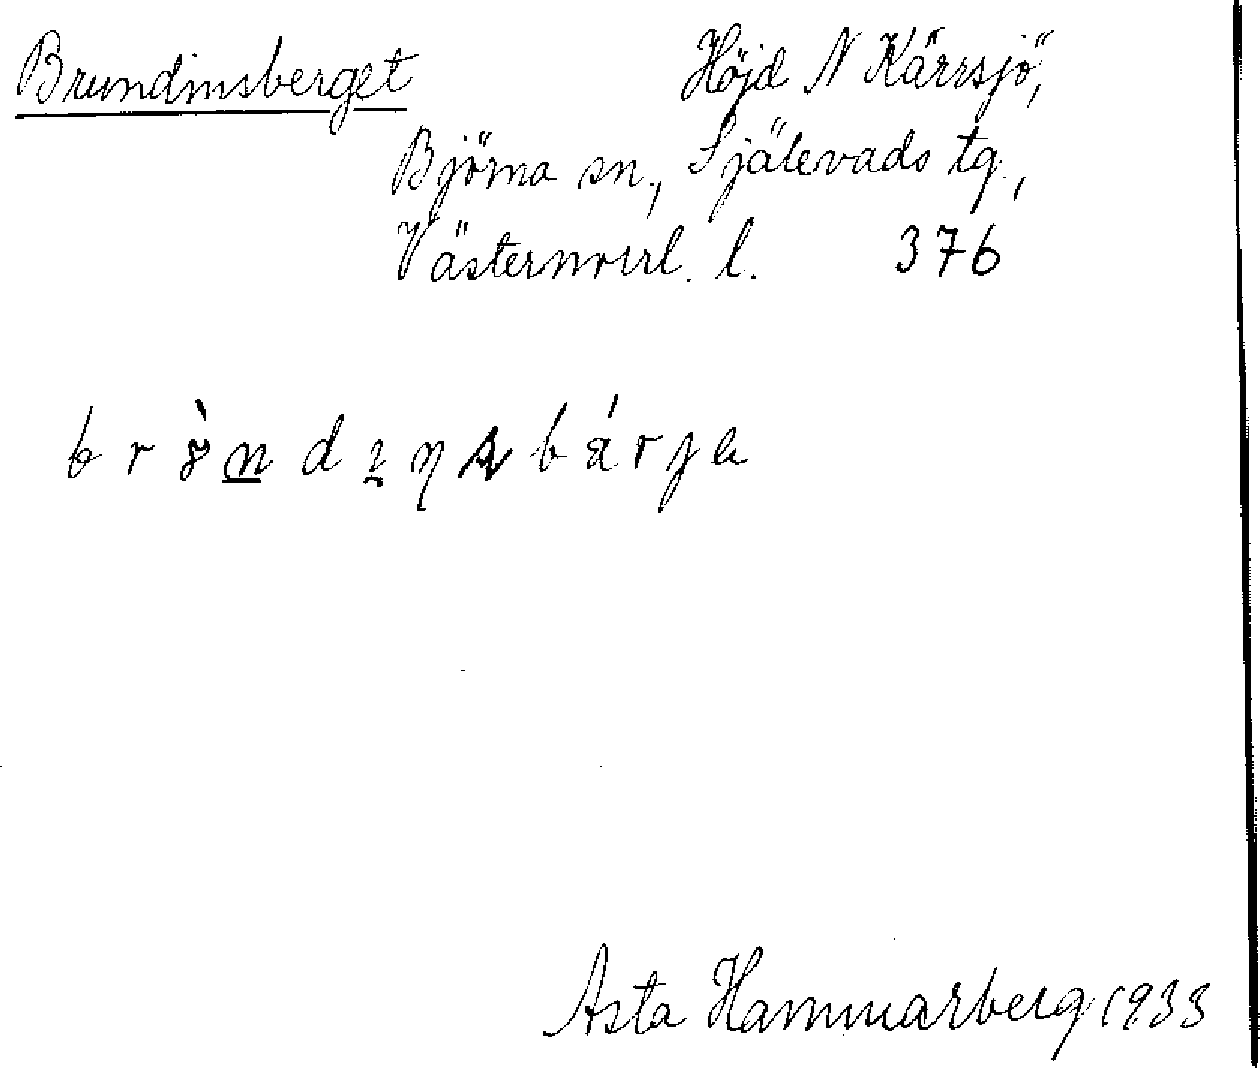 Brundinsberget Höjd N Kärrsjö,
Björna sn., Själevads tg.,
Västernorrl. l. 376
Asta Hammarberg 1933